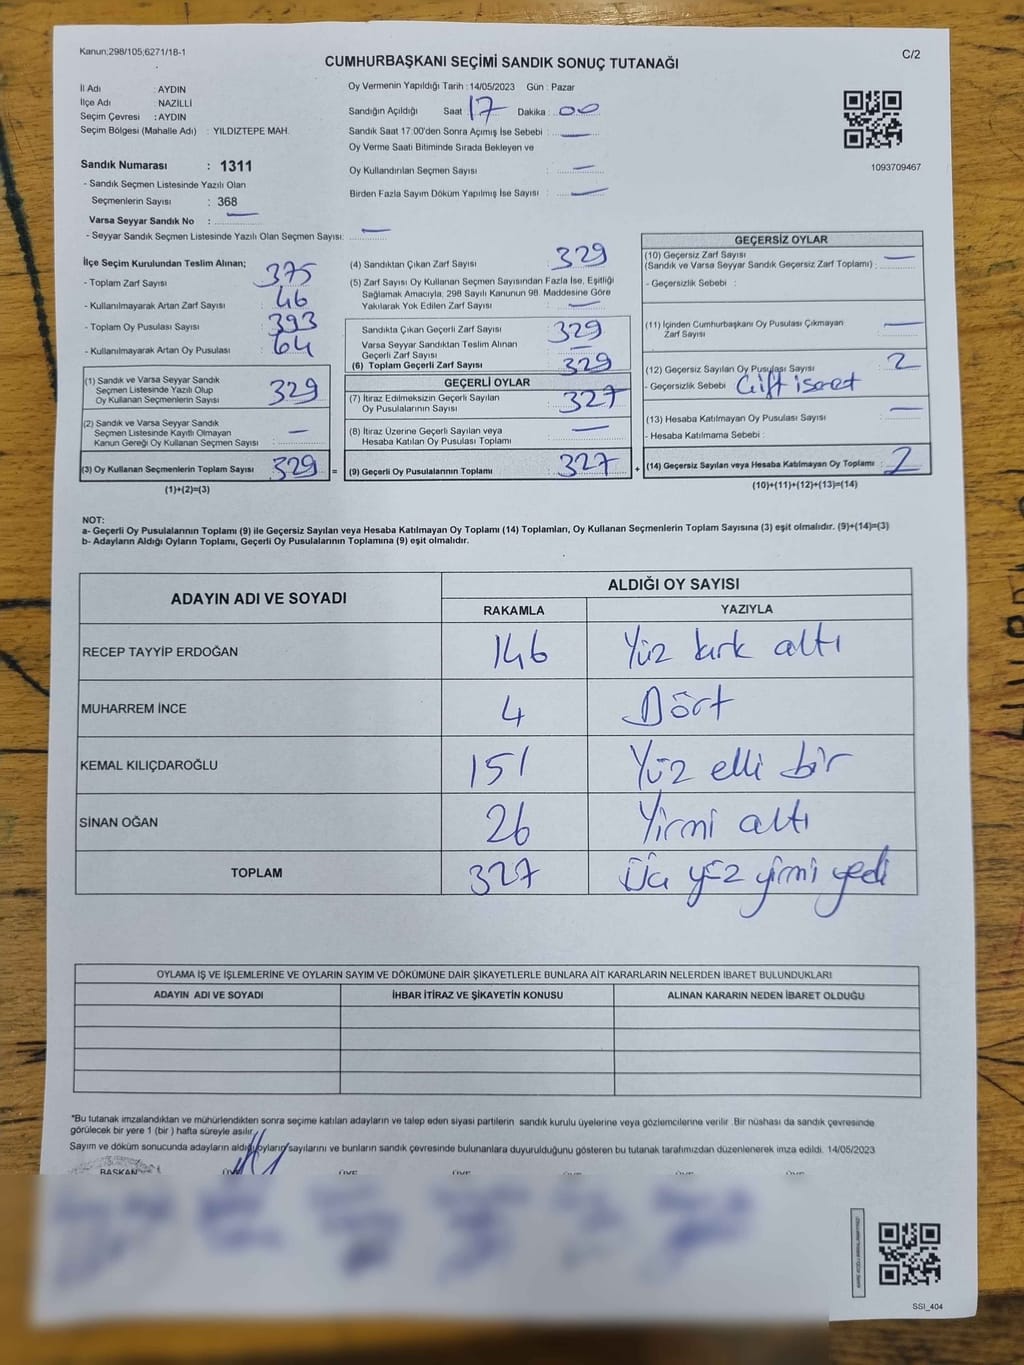 Kanun:298/105;6271/18-1
C/2
CUMHURBAŞKANI SEÇİMİ SANDIK SONUÇ TUTANAĞI
İl Adı : AYDIN
İlçe Adı : NAZİLLİ
Seçim Çevresi : AYDIN
Seçim Bölgesi (Mahalle Adı) : YILDIZTEPE MAH.
Sandık Numarası : 1311
- Sandık Seçmen Listesinde Yazılı Olan
Seçmenlerin Sayısı : 368
Varsa Seyyar Sandık No : —
- Seyyar Sandık Seçmen Listesinde Yazılı Olan Seçmen Sayısı: —
Oy Vermenin Yapıldığı Tarih : 14/05/2023 Gün : Pazar
Sandığın Açıldığı Saat 17 Dakika : 00
Sandık Saat 17.00'den Sonra Açımış İse Sebebi : —
Oy Verme Saati Bitiminde Sırada Bekleyen ve
Oy Kullandırılan Seçmen Sayısı : —
Birden Fazla Sayım Döküm Yapılmış İse Sayısı : —
1093709467
İlçe Seçim Kurulundan Teslim Alınan;
- Toplam Zarf Sayısı : 375
- Kullanılmayarak Artan Zarf Sayısı : 46
- Toplam Oy Pusulası Sayısı : 393
- Kullanılmayarak Artan Oy Pusulası : 64
(1) Sandık ve Varsa Seyyar Sandık
Seçmen Listesinde Yazılı Olup
Oy Kullanan Seçmenlerin Sayısı : 329
(2) Sandık ve Varsa Seyyar Sandık
Seçmen Listesinde Kayıtlı Olmayan
Kanun Gereği Oy Kullanan Seçmen Sayısı : —
(3) Oy Kullanan Seçmenlerin Toplam Sayısı : 329 =
(1)+(2)=(3)
(4) Sandıktan Çıkan Zarf Sayısı : 329
(5) Zarf Sayısı Oy Kullanan Seçmen Sayısından Fazla İse, Eşitliği
Sağlamak Amacıyla, 298 Sayılı Kanunun 98. Maddesine Göre
Yakılarak Yok Edilen Zarf Sayısı : —
Sandıkta Çıkan Geçerli Zarf Sayısı : 329
Varsa Seyyar Sandıktan Teslim Alınan
Geçerli Zarf Sayısı : —
(6) Toplam Geçerli Zarf Sayısı : 329
GEÇERLİ OYLAR
(7) İtiraz Edilmeksizin Geçerli Sayılan
Oy Pusulalarının Sayısı : 327
(8) İtiraz Üzerine Geçerli Sayılan veya
Hesaba Katılan Oy Pusulası Toplamı : —
(9) Geçerli Oy Pusulalarının Toplamı : 327 +
GEÇERSİZ OYLAR
(10) Geçersiz Zarf Sayısı
(Sandık ve Varsa Seyyar Sandık Geçersiz Zarf Toplamı) : —
- Geçersizlik Sebebi :
(11) İçinden Cumhurbaşkanı Oy Pusulası Çıkmayan
Zarf Sayısı : —
(12) Geçersiz Sayılan Oy Pusulası Sayısı : 2
- Geçersizlik Sebebi : Çift işaret
(13) Hesaba Katılmayan Oy Pusulası Sayısı : —
- Hesaba Katılmama Sebebi :
(14) Geçersiz Sayılan veya Hesaba Katılmayan Oy Toplamı : 2
(10)+(11)+(12)+(13)=(14)
NOT:
a- Geçerli Oy Pusulalarının Toplamı (9) ile Geçersiz Sayılan veya Hesaba Katılmayan Oy Toplamı (14) Toplamları, Oy Kullanan Seçmenlerin Toplam Sayısına (3) eşit olmalıdır. (9)+(14)=(3)
b- Adayların Aldığı Oyların Toplamı, Geçerli Oy Pusulalarının Toplamına (9) eşit olmalıdır.
ADAYIN ADI VE SOYADI ALDIĞI OY SAYISI
RAKAMLA YAZIYLA
RECEP TAYYİP ERDOĞAN 146 Yüz kırk altı
MUHARREM İNCE 4 Dört
KEMAL KILIÇDAROĞLU 151 Yüz elli bir
SİNAN OĞAN 26 Yirmi altı
TOPLAM 327 Üç yüz yirmi yedi
OYLAMA İŞ VE İŞLEMLERİNE VE OYLARIN SAYIM VE DÖKÜMÜNE DAİR ŞİKAYETLERLE BUNLARA AİT KARARLARIN NELERDEN İBARET BULUNDUKLARI
ADAYIN ADI VE SOYADI İHBAR İTİRAZ VE ŞİKAYETİN KONUSU ALINAN KARARIN NEDEN İBARET OLDUĞU
*Bu tutanak imzalandıktan ve mühürlendikten sonra seçime katılan adayların ve talep eden siyasi partilerin sandık kurulu üyelerine veya gözlemcilerine verilir .Bir nüshası da sandık çevresinde
görülecek bir yere 1 (bir ) hafta süreyle asılır.
Sayım ve döküm sonucunda adayların aldığı oyların sayılarını ve bunların sandık çevresinde bulunanlara duyurulduğunu gösteren bu tutanak tarafımızdan düzenlenerek imza edildi. 14/05/2023
BAŞKAN ÜYE ÜYE ÜYE ÜYE ÜYE
SSI_404